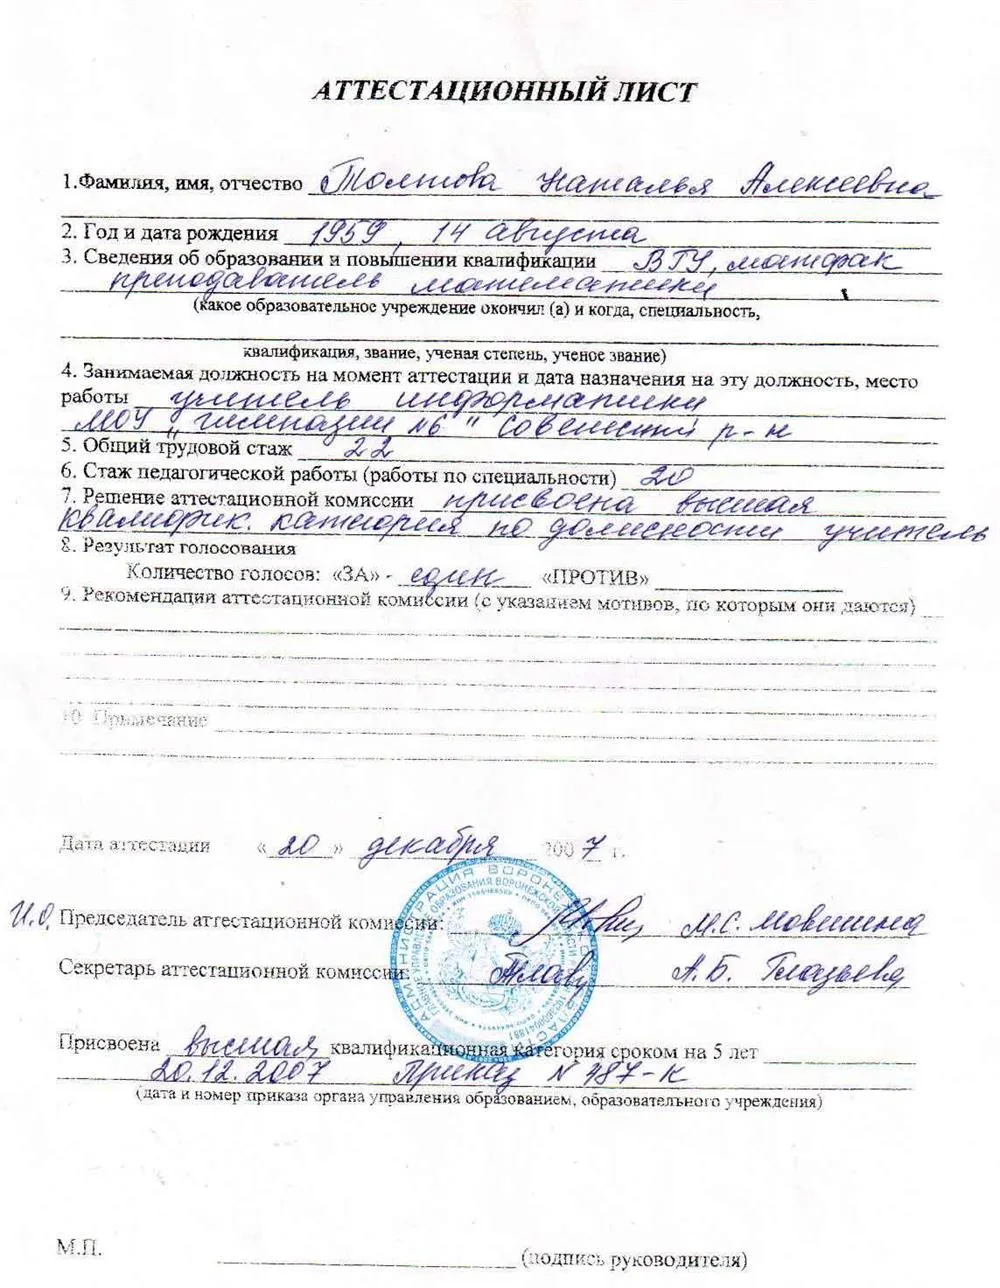 АТТЕСТАЦИОННЫЙ ЛИСТ
1.Фамилия, имя, отчество Толтова Наталья Алексеевна
2. Год и дата рождения 1959, 14 августа
3. Сведения об образовании и повышении квалификации ВГУ, матфак
преподаватель математики
(какое образовательное учреждение окончил (а) и когда, специальность,
квалификация, звание, ученая степень, ученое звание)
4. Занимаемая должность на момент аттестации и дата назначения на эту должность, место
работы учитель информатики
МОУ "гимназии №6" Советский р-н
5. Общий трудовой стаж 22
6. Стаж педагогической работы (работы по специальности) 20
7. Решение аттестационной комиссии присвоена высшая
квалифик. категория по должности учитель
8. Результат голосования
Количество голосов: «ЗА» - один «ПРОТИВ»
9. Рекомендации аттестационной комиссии (с указанием мотивов, по которым они даются)
10. Примечание
Дата аттестации «20» декабря 2007 г.
И.О. Председатель аттестационной комиссии: М.С. Мовшина
Секретарь аттестационной комиссии: А.Б. Глазьева
Присвоена высшая квалификационная категория сроком на 5 лет
20.12.2007 Приказ N 787-к
(дата и номер приказа органа управления образованием, образовательного учреждения)
М.П. (подпись руководителя)